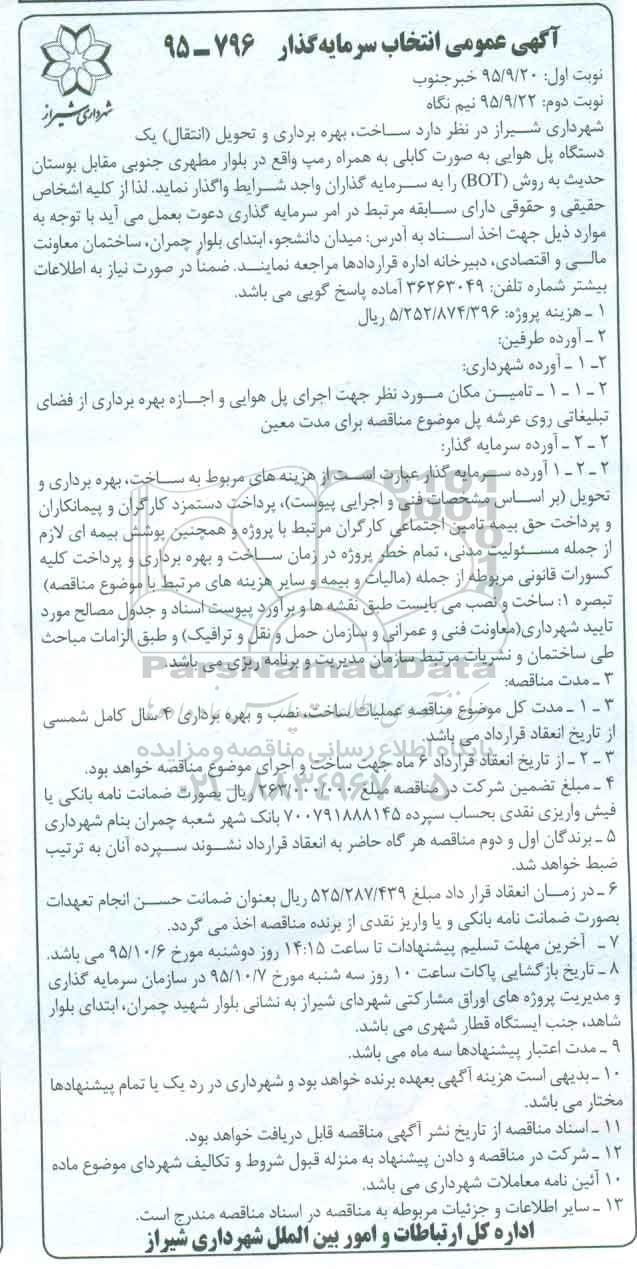 آگهی عمومی انتخاب سرمایه‌گذار ۷۹۶ ـ ۹۵
شهرداری شیراز
نوبت اول: ۹۵/۹/۲۰ خبرجنوب
نوبت دوم: ۹۵/۹/۲۲ نیم نگاه
شهرداری شیراز در نظر دارد ساخت، بهره برداری و تحویل (انتقال) یک
دستگاه پل هوایی به صورت کابلی به همراه رمپ واقع در بلوار مطهری جنوبی مقابل بوستان
حدیث به روش (BOT) را به سرمایه گذاران واجد شرایط واگذار نماید. لذا از کلیه اشخاص
حقیقی و حقوقی دارای سابقه مرتبط در امر سرمایه گذاری دعوت بعمل می آید با توجه به
موارد ذیل جهت اخذ اسناد به آدرس: میدان دانشجو، ابتدای بلوار چمران، ساختمان معاونت
مالی و اقتصادی، دبیرخانه اداره قراردادها مراجعه نمایند. ضمناً در صورت نیاز به اطلاعات
بیشتر شماره تلفن: ۳۶۲۶۳۰۴۹ آماده پاسخ گویی می باشد.
۱ ـ هزینه پروژه: ۵/۲۵۲/۸۷۴/۳۹۶ ریال
۲ ـ آورده طرفین:
۲ـ ۱ ـ آورده شهرداری:
۲ ـ ۱ ـ ۱ ـ تامین مکان مورد نظر جهت اجرای پل هوایی و اجازه بهره برداری از فضای
تبلیغاتی روی عرشه پل موضوع مناقصه برای مدت معین
۲ ـ ۲ ـ آورده سرمایه گذار:
۲ ـ ۲ ـ ۱ آورده سرمایه گذار عبارت است از هزینه های مربوط به ساخت، بهره برداری و
تحویل (بر اساس مشخصات فنی و اجرایی پیوست)، پرداخت دستمزد کارگران و پیمانکاران
و پرداخت حق بیمه تامین اجتماعی کارگران مرتبط با پروژه و همچنین پوشش بیمه ای لازم
از جمله مسئولیت مدنی، تمام خطر پروژه در زمان ساخت و بهره برداری و پرداخت کلیه
کسورات قانونی مربوطه از جمله (مالیات و بیمه و سایر هزینه های مرتبط با موضوع مناقصه)
تبصره ۱: ساخت و نصب می بایست طبق نقشه ها و برآورد پیوست اسناد و جدول مصالح مورد
تایید شهرداری(معاونت فنی و عمرانی و سازمان حمل و نقل و ترافیک) و طبق الزامات مباحث
طی ساختمان و نشریات مرتبط سازمان مدیریت و برنامه ریزی می باشد.
ParsNamadData
۳ ـ مدت مناقصه:
۳ ـ ۱ ـ مدت کل موضوع مناقصه عملیات ساخت، نصب و بهره برداری ۴ سال کامل شمسی
از تاریخ انعقاد قرارداد می باشد.
پایگاه اطلاع رسانی مناقصه و مزایده
۳ ـ ۲ ـ از تاریخ انعقاد قرارداد ۶ ماه جهت ساخت و اجرای موضوع مناقصه خواهد بود.
۰۲۱-۸۸۳۴۹۶۷۰-۵
۴ ـ مبلغ تضمین شرکت در مناقصه مبلغ ۲۶۳/۰۰۰/۰۰۰ ریال بصورت ضمانت نامه بانکی یا
فیش واریزی نقدی بحساب سپرده ۷۰۰۷۹۱۸۸۸۱۴۵ بانک شهر شعبه چمران بنام شهرداری
۵ ـ برندگان اول و دوم مناقصه هر گاه حاضر به انعقاد قرارداد نشوند سپرده آنان به ترتیب
ضبط خواهد شد.
۶ ـ در زمان انعقاد قرار داد مبلغ ۵۲۵/۲۸۷/۴۳۹ ریال بعنوان ضمانت حسن انجام تعهدات
بصورت ضمانت نامه بانکی و یا واریز نقدی از برنده مناقصه اخذ می گردد.
۷ ـ آخرین مهلت تسلیم پیشنهادات تا ساعت ۱۴:۱۵ روز دوشنبه مورخ ۹۵/۱۰/۶ می باشد.
۸ ـ تاریخ بازگشایی پاکات ساعت ۱۰ روز سه شنبه مورخ ۹۵/۱۰/۷ در سازمان سرمایه گذاری
و مدیریت پروژه های اوراق مشارکتی شهردای شیراز به نشانی بلوار شهید چمران، ابتدای بلوار
شاهد، جنب ایستگاه قطار شهری می باشد.
۹ ـ مدت اعتبار پیشنهادها سه ماه می باشد.
۱۰ ـ بدیهی است هزینه آگهی بعهده برنده خواهد بود و شهرداری در رد یک یا تمام پیشنهادها
مختار می باشد.
۱۱ ـ اسناد مناقصه از تاریخ نشر آگهی مناقصه قابل دریافت خواهد بود.
۱۲ ـ شرکت در مناقصه و دادن پیشنهاد به منزله قبول شروط و تکالیف شهردای موضوع ماده
۱۰ آئین نامه معاملات شهرداری می باشد.
۱۳ ـ سایر اطلاعات و جزئیات مربوطه به مناقصه در اسناد مناقصه مندرج است.
اداره کل ارتباطات و امور بین الملل شهرداری شیراز